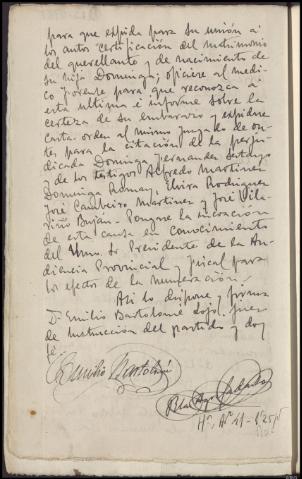 para que expida para su unión á
los autos certificación del matrimonio
del querellante y de nacimiento de
su hija Dominga; ofíciese al médi-
co forense para que reconozca á
esta última é informe sobre la
certeza de su embarazo y expídase
carta-orden al mismo Juzgado de
tes para la citación de la perju-
dicada Dominga Fernandez
y de los testigos Alfredo Martinez
Dominga Romay, Elvira Rodriguez
José Cambeiro Martinez y José Vila-
riño Buján. Póngase la incoacion
de esta causa en conocimiento
del Sr Presidente de la Au-
diencia Provincial y Fiscal para
los efectos de la numeración.
Así lo dispone y firma
Dn Emilio Bartolomé Juez
de instruccion del partido y doy
fe.
Emilio Bartolomé